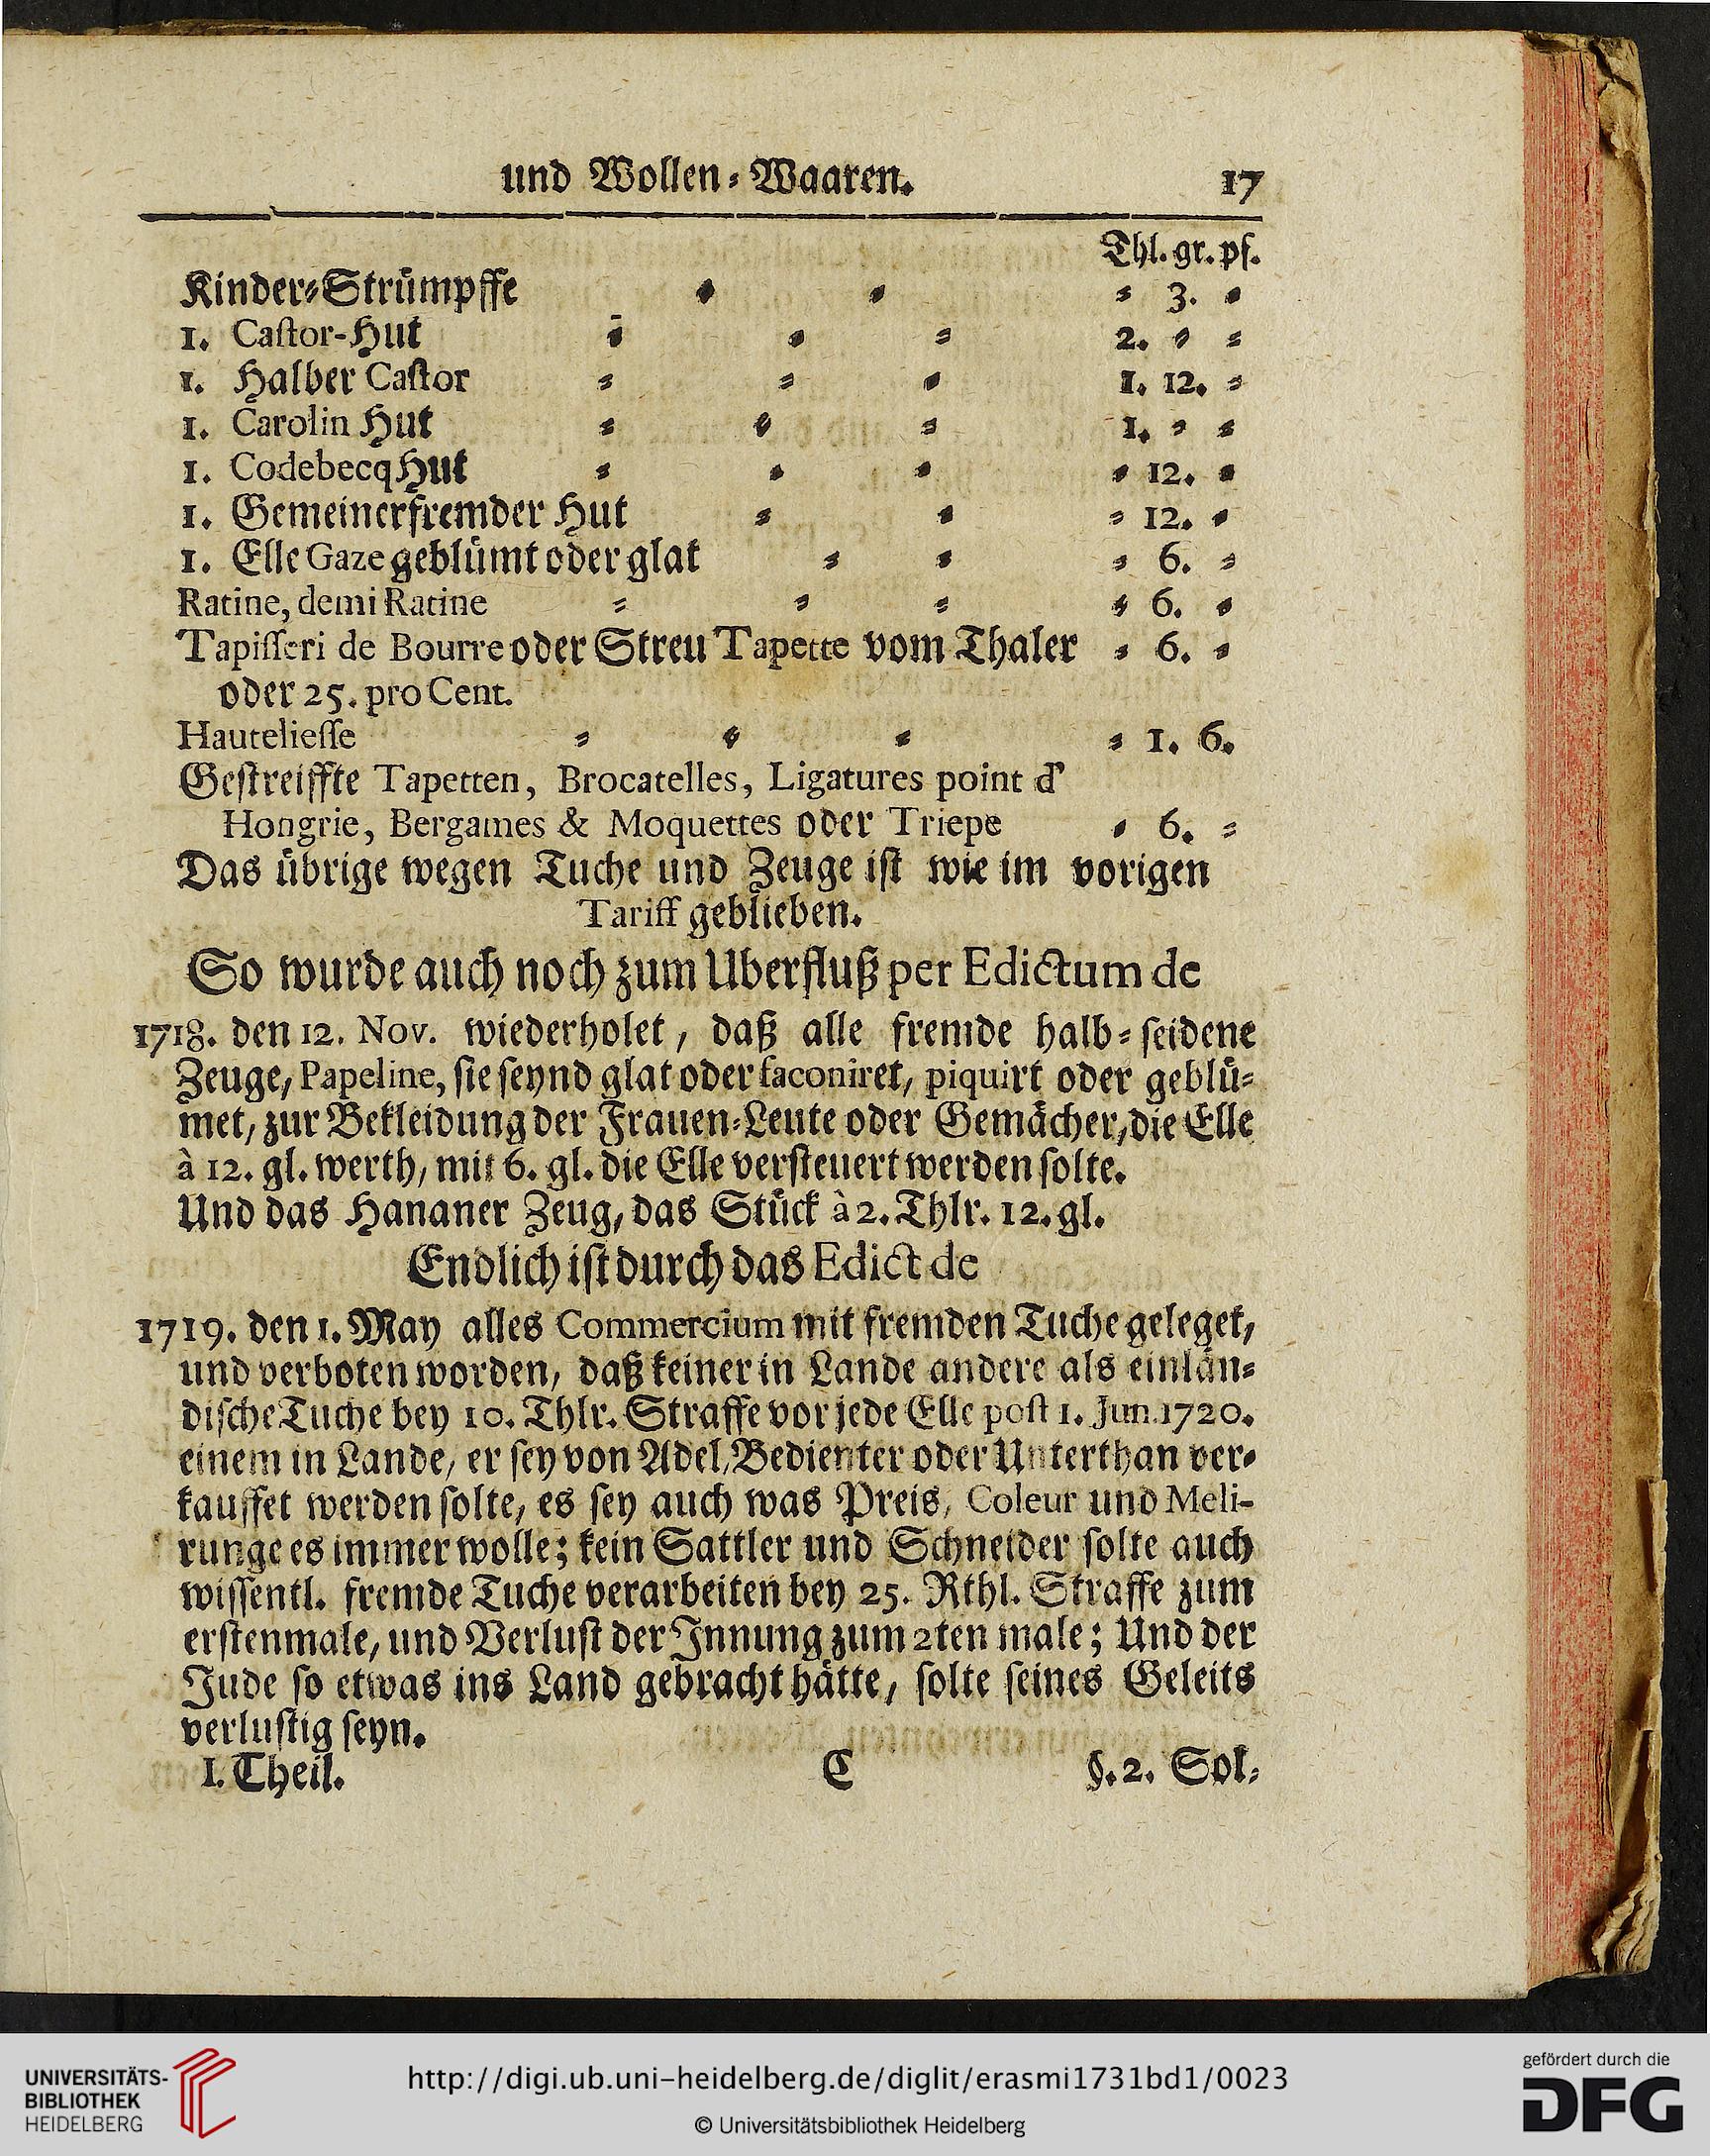 und Wollen⸗Waaren. 17
Thl. gr. pf.
Kinder⸗Strümpffe ⸗ ⸗ ⸗ 3. ⸗
1. Castor-Hut ⸗ ⸗ ⸗ 2. ⸗ ⸗
1. Halber Castor ⸗ ⸗ ⸗ 1. 12. ⸗
1. Carolin Hut ⸗ ⸗ ⸗ 1. ⸗ ⸗
1. Codebecq Hut ⸗ ⸗ ⸗ ⸗ 12. ⸗
1. Gemeiner fremder Hut ⸗ ⸗ ⸗ 12. ⸗
1. Elle Gaze geblümt oder glat ⸗ ⸗ ⸗ 6. ⸗
Ratine, demi Ratine ⸗ ⸗ ⸗ ⸗ 6. ⸗
Tapisseri de Bourre oder Streu Tapette vom Thaler ⸗ 6. ⸗
oder 25. pro Cent.
Hauteliesse ⸗ ⸗ ⸗ ⸗ 1. 6.
Gestreiffte Tapetten, Brocatelles, Ligatures point d'
Hongrie, Bergames & Moquettes oder Triepe ⸗ 6. ⸗
Das übrige wegen Tuche und Zeuge ist wie im vorigen
Tariff geblieben.
So wurde auch noch zum Uberfluß per Edictum de
1718. den 12. Nov. wiederholet, daß alle fremde halb⸗seidene
Zeuge, Papeline, sie seynd glat oder faconiret, piquirt oder geblü⸗
met, zur Bekleidung der Frauen⸗Leute oder Gemächer, die Elle
à 12. gl. werth, mit 6. gl. die Elle versteuert werden solte.
Und das Hananer Zeug, das Stück à 2. Thlr. 12. gl.
Endlich ist durch das Edict de
1719. den 1. May alles Commercium mit fremden Tuche geleget,
und verboten worden, daß keiner in Lande andere als einlän⸗
dische Tuche bey 10. Thlr. Straffe vor jede Elle post 1. Jun. 1720.
einem in Lande, er sey von Adel, Bedienter oder Unterthan ver⸗
kauffet werden solte, es sey auch was Preis, Coleur und Meli-
runge es immer wolle; kein Sattler und Schneider solte auch
wissentl. fremde Tuche verarbeiten bey 25. Rthl. Straffe zum
erstenmale, und Verlust der Innung zum 2ten male; Und der
Jude so etwas ins Land gebracht hätte, solte seines Geleits
verlustig seyn.
I. Theil. C §. 2. Sol⸗
UNIVERSITÄTS-
BIBLIOTHEK
HEIDELBERG
http://digi.ub.uni-heidelberg.de/diglit/erasmi1731bd1/0023
© Universitätsbibliothek Heidelberg
gefördert durch die
DFG